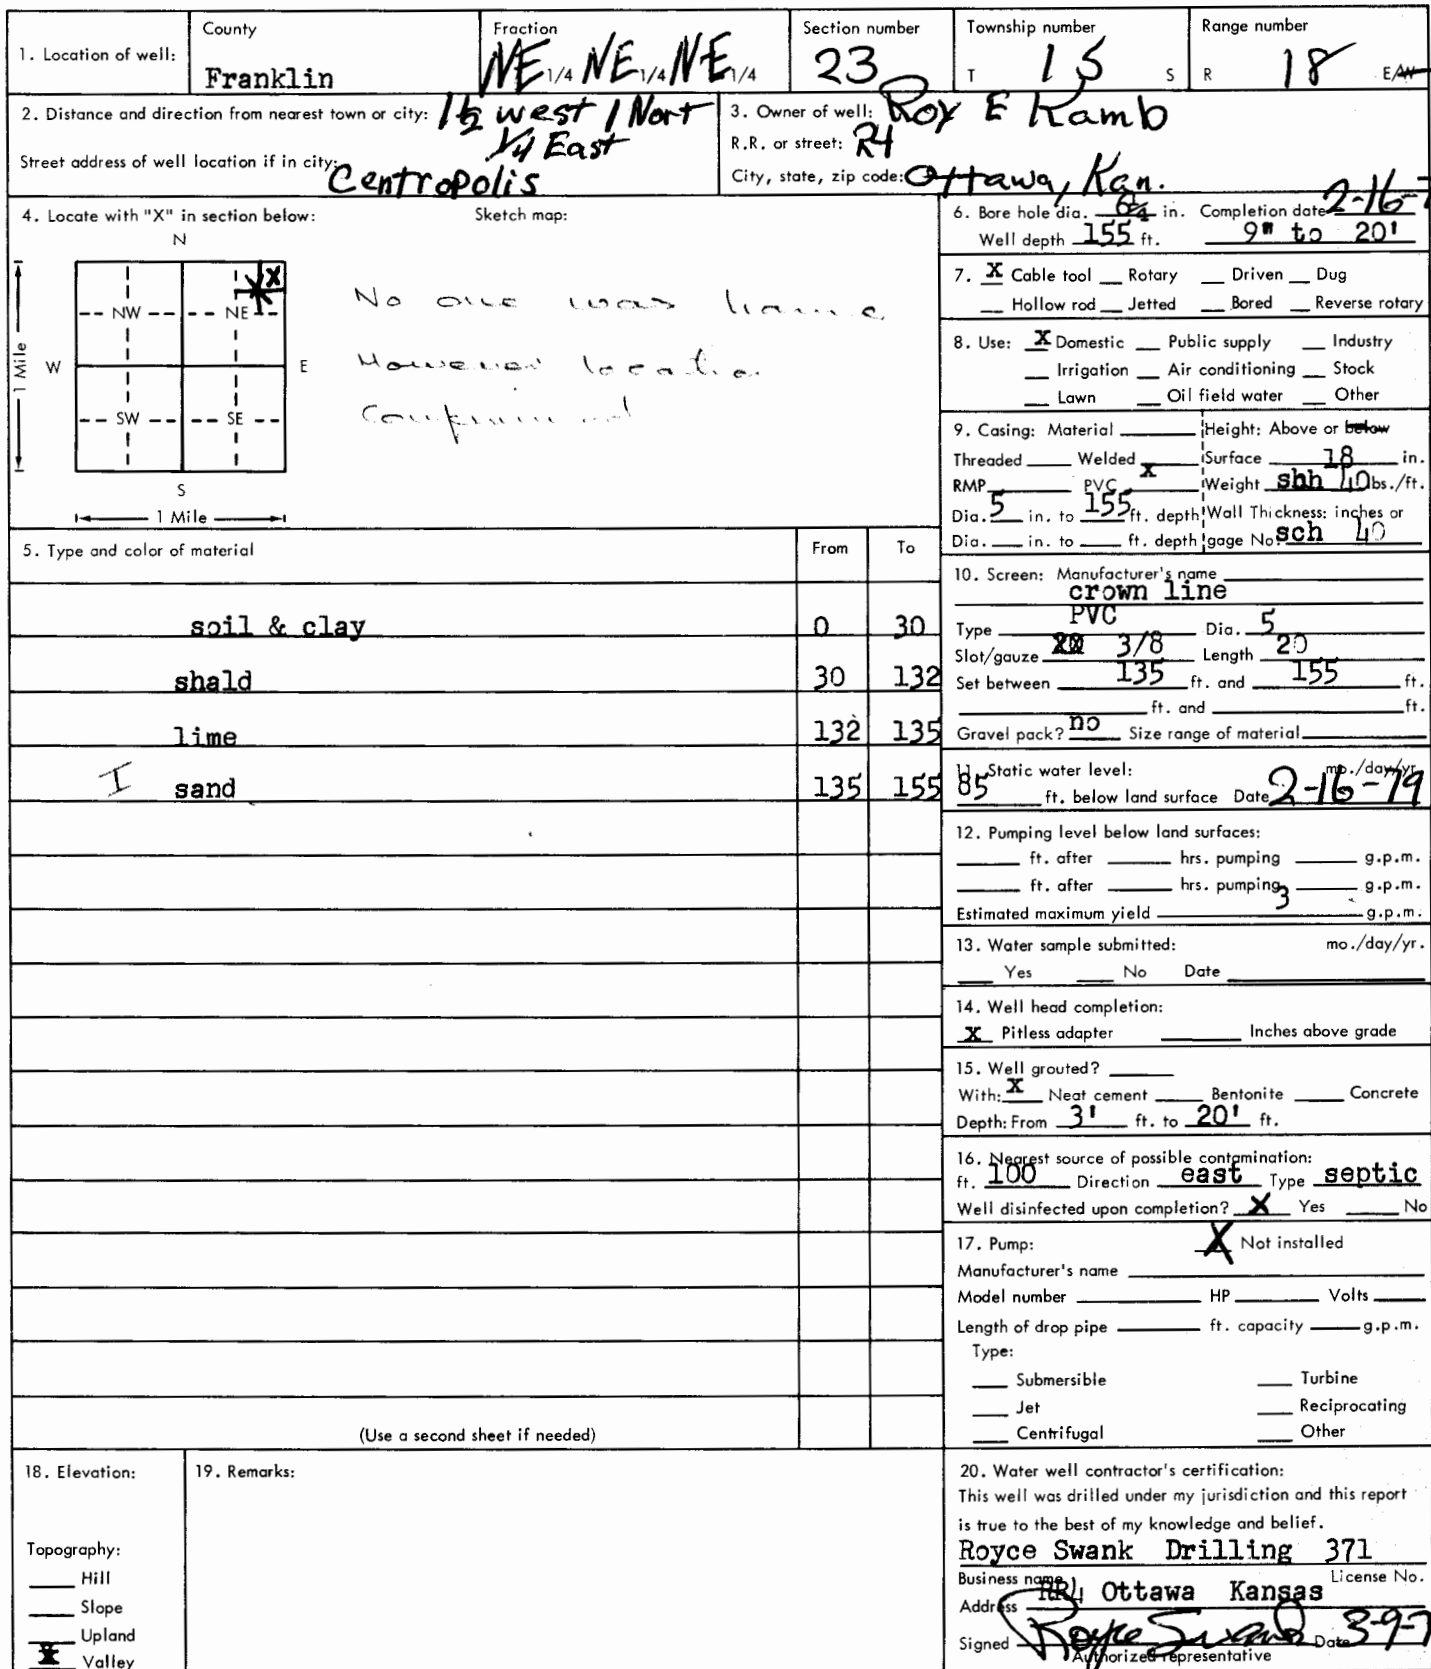 1. Location of well: County Franklin Fraction NE 1/4 NE 1/4 NE 1/4 Section number 23 Township number T 15 S Range number R 18 E/W
2. Distance and direction from nearest town or city: 1½ west 1 Nort
1/4 East
Street address of well location if in city: Centropolis
3. Owner of well: Roy E Kamb
R.R. or street: R4
City, state, zip code: Ottawa, Kan.
4. Locate with "X" in section below: Sketch map:
N
X
NW NE
W E
SW SE
S
1 Mile
1 Mile
No one was home
However location
Confirmed
6. Bore hole dia. 6¼ in. Completion date 2-16-7
Well depth 155 ft. 9" to 20'
7. X Cable tool Rotary Driven Dug
Hollow rod Jetted Bored Reverse rotary
8. Use: X Domestic Public supply Industry
Irrigation Air conditioning Stock
Lawn Oil field water Other
9. Casing: Material Height: Above or below
Threaded Welded Surface 18 in.
RMP PVC X Weight shh 40 lbs./ft.
Dia. 5 in. to 155 ft. depth Wall Thickness: inches or
Dia. in. to ft. depth gage No. sch 40
5. Type and color of material From To
soil & clay 0 30
shald 30 132
lime 132 135
I sand 135 155
(Use a second sheet if needed)
10. Screen: Manufacturer's name
crown line
Type PVC Dia. 5
Slot/gauze 3/8 Length 20
Set between 135 ft. and 155 ft.
ft. and ft.
Gravel pack? no Size range of material
11. Static water level: mo./day/yr.
85 ft. below land surface Date 2-16-79
12. Pumping level below land surfaces:
ft. after hrs. pumping g.p.m.
ft. after hrs. pumping g.p.m.
Estimated maximum yield 3 g.p.m.
13. Water sample submitted: mo./day/yr.
Yes No Date
14. Well head completion:
X Pitless adapter Inches above grade
15. Well grouted?
With: X Neat cement Bentonite Concrete
Depth: From 3' ft. to 20' ft.
16. Nearest source of possible contamination:
ft. 100 Direction east Type septic
Well disinfected upon completion? X Yes No
17. Pump: X Not installed
Manufacturer's name
Model number HP Volts
Length of drop pipe ft. capacity g.p.m.
Type:
Submersible Turbine
Jet Reciprocating
Centrifugal Other
18. Elevation:
Topography:
Hill
Slope
Upland
X Valley
19. Remarks:
20. Water well contractor's certification:
This well was drilled under my jurisdiction and this report
is true to the best of my knowledge and belief.
Royce Swank Drilling 371
Business name License No.
Address RR4 Ottawa Kansas
Signed Royce Swank Date 3-9-7
Authorized representative